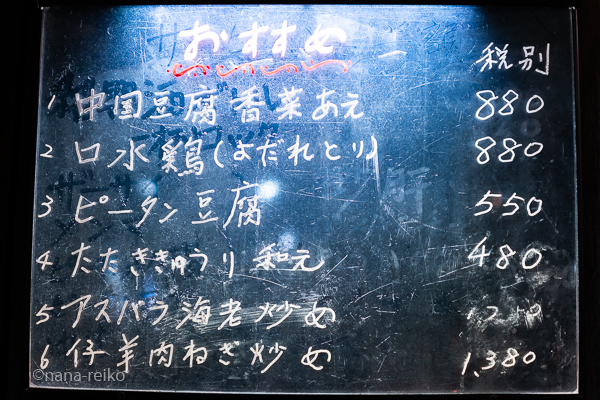 おすすめ
税別
1 中国豆腐香菜あえ 880
2 口水鶏(よだれとり) 880
3 ピータン豆腐 550
4 たたききゅうり和え 480
5 アスパラ海老炒め
6 仔羊肉ねぎ炒め 1,380
©nana-reiko